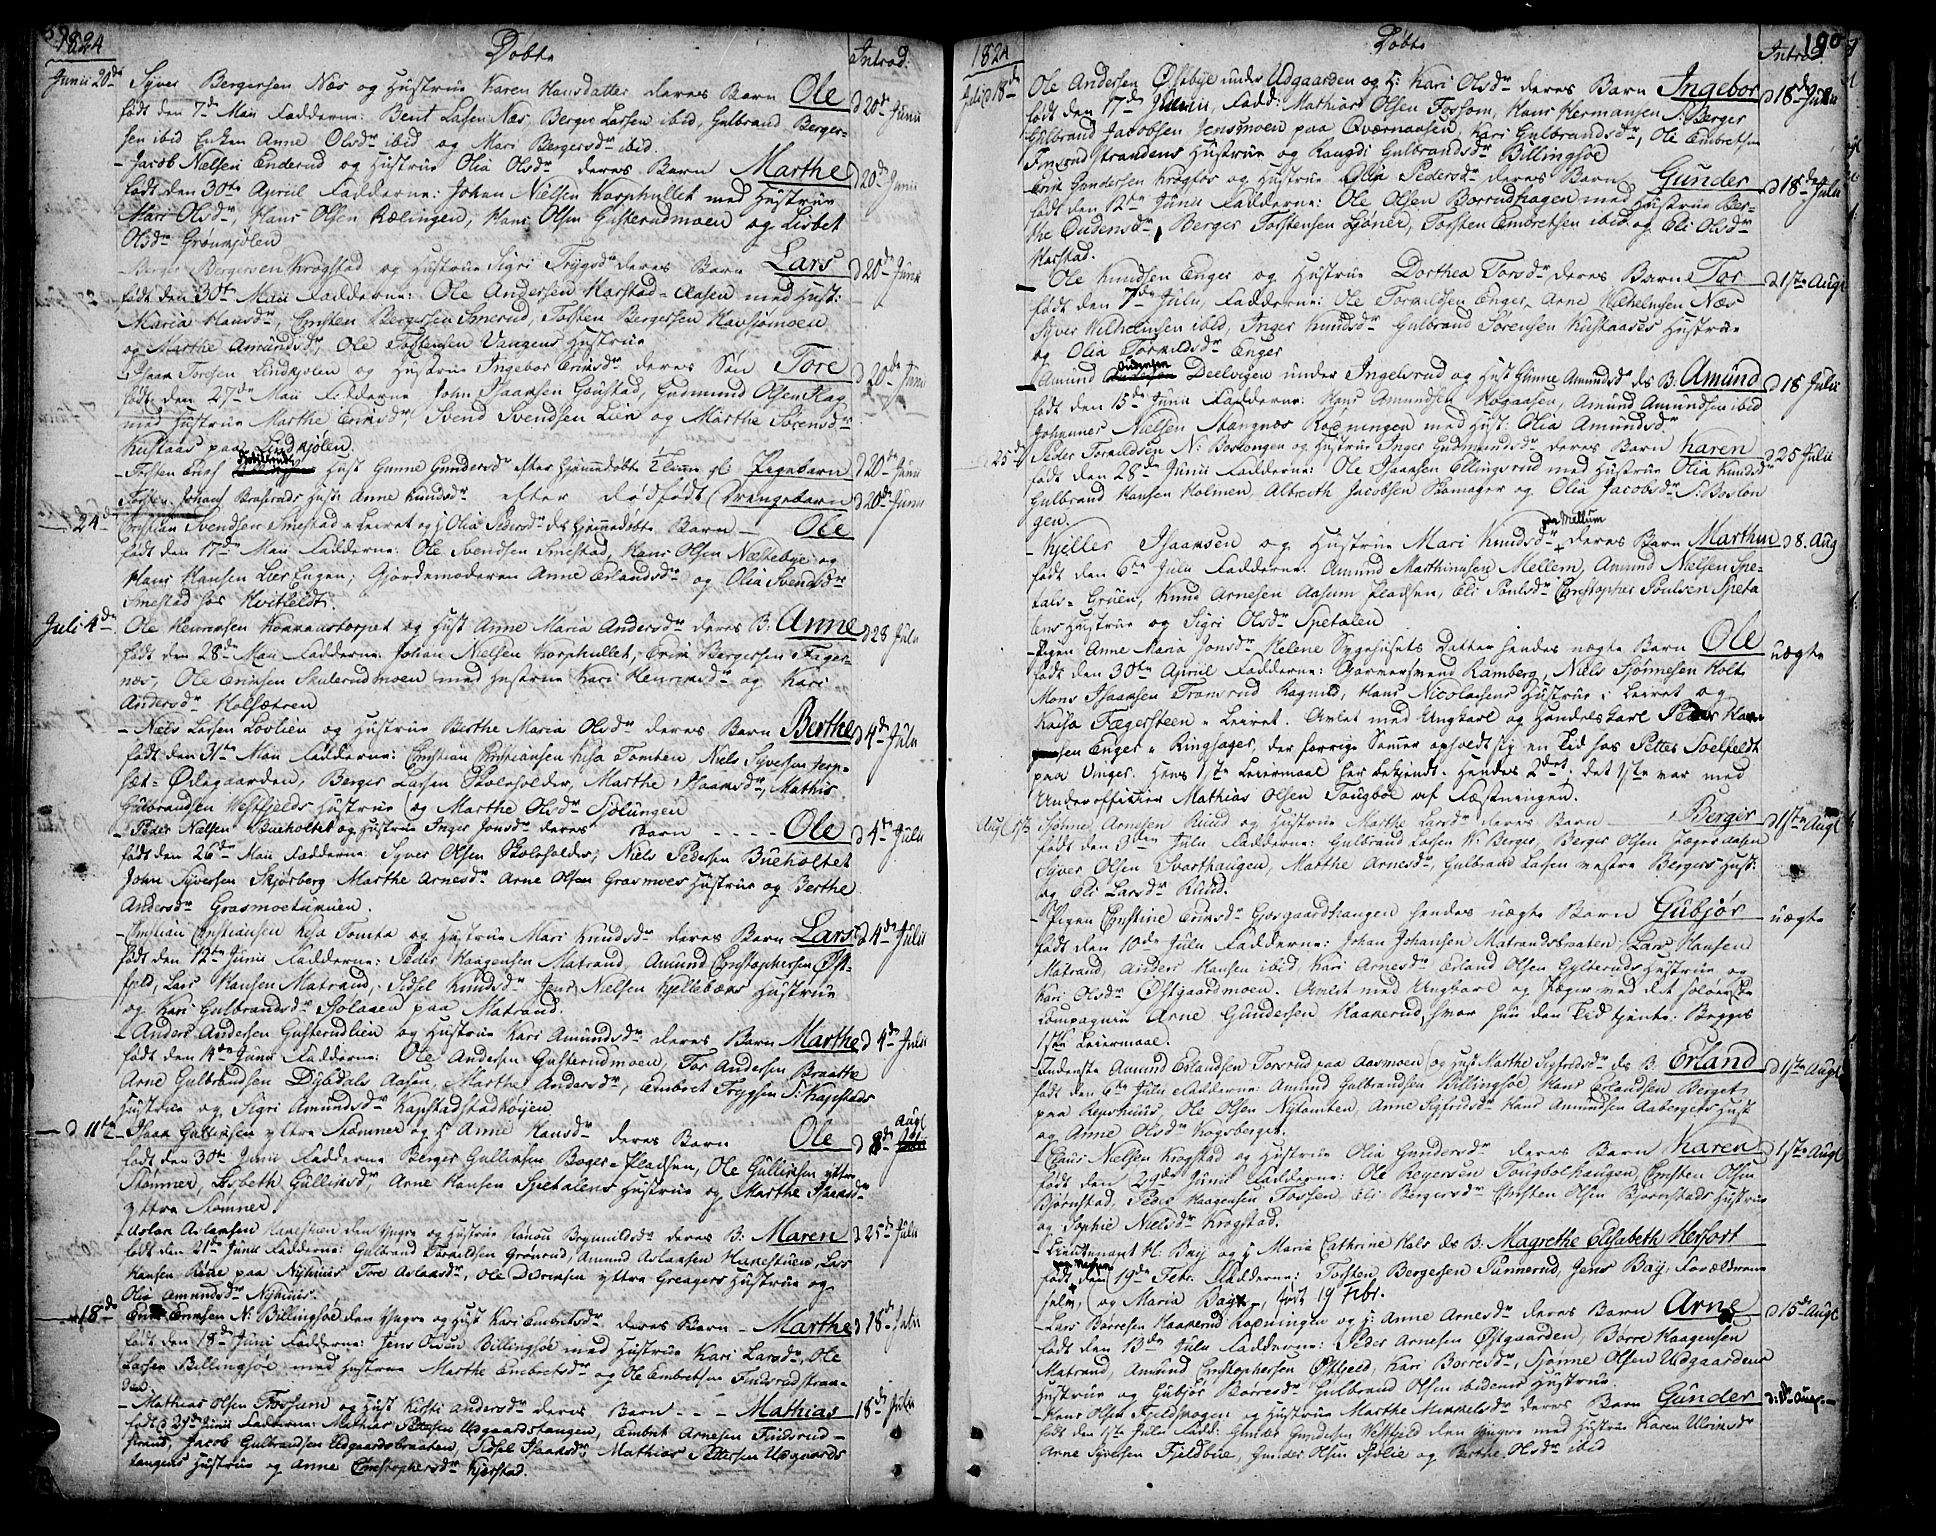 1824 Døbte Introd:
Junii 20de Syver Bergersen Næs og Hustrue Karen Hansdatter deres Barn Ole d 20de Junii
født den 7de Maii Fadderne: Bent Larsen Næs, Berger Larsen ibid, Gulbrand Berger-
sen ibid Enken Anne Olsdr ibid og Mari Bergersdr ibid.
Jacob Nielsen Enderud og Hustrue Olia Olsdr deres Barn Marthe d 20de Junii
født den 30te April Fadderne: Johan Nielsen Korphullet med Hustrue
Mari Olsdr, Hans Olsen Rælingen, Hans Olsen Gusterudmoen og Lisbet
Olsdr Grønkjølen
Berger Bergersen Krogstad og Hustrue Sigri Trygsdr deres Barn Lars d 20de Junii
født den 30te Maii Fadderne: Ole Andersen Harstad-Aasen med Hust:
Maria Hansdr, Christen Bergersen Smerud, Torsten Bergersen Kavsjømoen
og Marthe Amundsdr, Ole Torstensen Vangens Hustrue
Isaak Toresen Lindkjølen og Hustrue Ingebor Erichsdr deres Søn Tore d 20de Junii
født den 27de Maii Fadderne John Isaaksen Goustad, Gudmund Olsen Hag
med Hustrue Marthe Erichsdr, Svend Svendsen Lier og Marthe Sørensdr
Kustaas paa Lindkjølen.
Hust Gunne Gundersdr efter hjemmedøbt Pigebarn d 20de Junii
Hust: Anne Knudsdr efter dødfødt Drengebarn d 20de Junii
24de Christian Svendsen Smestad Leiret og H Olia Pedersdr ds hjemmedøbte Barn Ole
født den 17de Maii Fadderne: Ole Svendsen Smestad, Hans Olsen Næstebye og
Hans Hansen Lier Engen, Gjordemoderen Anne Erlandsdr og Olia Svendsdr
Smestad hos Hvitfeldt.
Juli 4de Ole Henrichsen Kornmostorpet og Hust Anne Maria Andersdr deres B: Anne d 28 Julii
født den 28de Maii Fadderne: Johan Nielsen Korphullet, Erich Bergersen Fager-
næs, Ole Erichsen Skulerudmoen med Hustrue Kari Henrichsdr og Kari
Andersdr Holsætren
Niels Larsen Løvlien og Hustrue Berthe Maria Olsdr deres Barn Berthe d 4de Julii
født den 31te Maii Fadderne: Christian Christiansen Kisa Tomten Niels Syversen
Ødegaarden, Berger Larsen Skoleholder, Marthe Isaaksdr, Mathis
Gulbrandsen Vestfjelds Hustrue og Marthe Olsdr Sjølungen
Peder Nielsen Bueholtet og Hustrue Inger Jonsdr deres Barn Ole d 4de Julii
født den 26de Maii Fadderne: Syver Olsen Skoleholder, Niels Pedersen Bueholtet
John Syversen Skjørberg Marthe Arnesdr Arne Olsen Grasmoes Hustrue og Berthe
Andersdr Grasmoetunnen.
Christian Christiansen Kisa Tomta og Hustrue Mari Knudsdr deres Barn Lars d 4de Julii
født den 12te Junii Fadderne: Peder Haagensen Matrand, Amund Christophersen Øst-
fjeld, Lars Hansen Matrand, Sidsel Knudsdr Jens Nielsen Kjellebæks Hustrue
og Kari Gulbrandsdr Sjolaaen paa Matrand.
Anders Andersen Gusterudlien og Hustrue Kari Amundsdr deres Barn Marthe d 4de Julii
født den 14de Junii Fadderne: Ole Andersen Gusterudmoen, Tor Andersen Braathe
Arne Gulbrandsen Dybdals Aasen, Marthe Andersdr, Embret Trygsen S: Kapstads
Hustrue og Sigri Amundsdr
d 11te Isaak Gullichsen yttre Stømner og H Anne Hansdr deres Barn Ole d 8de Augt
født den 30te Junii Fadderne Berger Gullichsen Boger-Pladsen, Ole Gullichsen yttre
Stømner, Lisbeth Gullichsdr, Arne Hansen Spetalens Hustrue og Marthe Isaaksdr
yttre Stømner.
Aslak Aslaksen Harestuen den Yngre og Hustrue Rønou Brynnildsdr deres B: Maren d 25de Julii
født den 21de Junii Fadderne: Gulbrand Toraldsen Grønrud, Amund Aslaksen Harestuen, Lars
Hansen Røne paa Nyshuus Tore Aslaksdr, Ole Didrichsen yttre Greagers Hustrue og
Olia Amundsdr Nyshuus.
18de Erich Erichsen N: Billingsøe den Yngre og Hust Kari Embretsdr deres Barn Marthe d 18de Julii
født den 18de Junii Fadderne: Jens Olsen Billingsøe med Hustrue Kari Larsdr, Ole
Larsen Billingsøe med Hustrue Marthe Embretsdr og Ole Embretsen Findsrudstran-
den.
Mathias Olsen Fossum og Hust Kirsti Andersdr deres Barn Mathias 18de Julii
født d 21de Junii Fadderne: Mathias Pettersen Udgaardstangen, Embret Arnesen Findsrud-
strand, Jacob Gulbrandsen Udgaardsbraaten, Sidsel Isaaksdr Mathias Pettersen Udgaards
tangens Hustrue og Anne Christophersdr Kjerstad.
1824 Døbte 190 Introd:
Julii d 18de Ole Andersen Østbye under Udgaarden og H: Kari Olsdr deres Barn Ingebor d 18de Julii
født den 17de Junii, Fadd: Mathias Olsen Fossom, Hans Hermansen S: Berger
Gulbrand Jacobsen Jensmoen paa Qværnaasen, Kari Gulbrandsdr, Ole Embretsen
Finsrudstrandens Hustrue og Rangdi Gulbrandsdr Billingsøe
Erich Gundersen Krogfos og Hustrue Olia Pedersdr deres Barn Gunder d 18de Julii
født den 12te Junii Fadderne: Ole Olsen Borrudhagen med Hustrue Ber-
the Oudensdr, Berger Torstensen Ljoner, Torsten Embretsen ibid og Eli Olsdr
Harstad.
Ole Knudsen Enger og Hustrue Dorthea Torsdr deres Barn Tor d 1ste Augt
født den 7de Julii, Fadderne: Ole Torkildsen Enger, Arne Wilhelmsen Næs
Syver Wilhelmsen ibid, Inger Knudsdr Gulbrand Sørensen Kustaases Hustrue
og Olia Torkildsdr Enger
Amund Andersen Deelvigen under Ingelsrud og Hust Gunne Amundsdr ds B: Amund d 18 Julii
født den 15de Junii Fadderne: Hans Amundsen Holaasen, Amund Amundsen ibid
Johannes Nielsen Stangnæs Rodningen med Hust: Olia Amundsdr
25de Peder Toraldsen N: Boslongen og Hustrue Inger Gudmundsdr deres Barn Karen d 25 Julii
født den 28de Junii Fadderne: Ole Isaaksen Ellingsrud med Hustrue Olia Knudsdr
Gulbrand Hansen Holmen, Albreth Jacobsen Skomager og Olia Jacobsdr S: Boslon
gen.
Kjeller Isaaksen og Hustrue Mari Knudsdr paa Mellum deres Barn Marthin d 8. Aug
født den 6te Julii Fadderne: Amund Marthinusen Mellem, Amund Nielsen Spe-
tals-Gruen, Knud Arnesen Aasum Pladsen, Eli Poulsdr Christopher Poulsen Speta
lens Hustrue og Sigri Olsdr Spetalen
Pigen Anne Maria Jonsdr Helene Sygehusets Datter hendes uægte Barn Ole uægte
født den 30te April Fadderne: Qvartersmand Ramberg, Niels Sjønnesen Holt
Mons Isaaksen Tramrud Ragnild, Hans Nicolaisens Hustrue i Leiret og
Kaisa Fægersteen Leiret. Avlet med Ungkarl og Handelskarl Peder Han-
sen Enger Ringsager, der forrige Sommer opholdt sig en Tid hos Petter Soelfeldt
paa Unger. Hans 1te Leiermaal her bekjendt. Hendes 2det, det 1ste var med
Underofficier Mathias Olsen Tougbøl af Fæstningen.
Augt 1ste Sjønne Arnesen Ruud og Hustrue Marthe Larsdr deres Barn Berger d 1ste Augt
født den 3de Julii Fadderne: Gulbrand Larsen W: Berger, Berger Olsen Jægeraasen
Syver Olsen Svarthaugen, Marthe Arnesdr, Gulbrand Larsen vestre Bergers Hust:
og Eli Larsdr Ruud.
Pigen Christine Erichsdr Gjøsgaardhaugen hendes uægte Barn Gubjør uægte
født den 10de Julii Fadderne: Johan Johansen Matrandsbraaten, Lars Hansen
Matrand, Anders Hansen ibid, Kari Arnesdr Erland Olsen Gylteruds Hustrue og
Kari Olsdr Østgaardmoen. Avlet med Ungkarl og Jæger ved det Soløerske
Compagnie Arne Gundersen Haakerud, hvor hun den Tid tjente. Begges
1ste Leiermaal.
Inderste Amund Erlandsen Torsrud paa Aasmoen og Hust Marthe Sigfridsdr ds B. Erland d 1ste Augt
født den 6te Julii Fadderne: Amund Gulbrandsen Billingsøe Hans Erlandsen Berget
paa Rynshuus, Ole Olsen Nytomten, Anne Sigfridsdr Hans Amundsen Aabergets Hust
og Anne Olsdr Kogsberget.
Claus Nielsen Krogstad og Hustrue Olia Gundersdr deres Barn Karen d 1ste Augt
født den 29de Junii Fadderne: Ole Rogersen Tougbølshaugen, Christen Olsen
Bjørnstad, Peder Haagensen Forsen, Eli Bergersdr Christen Olsen Bjørnstads Hustrue
og Sophie Nielsdr Krogstad.
Lieutenant H: Bay og H Maria Cathrine Hals ds B: Magrethe Elisabeth Herfort
født den 19de Febr. Fadderne: Torsten Bergersen Tunnerud, Jens Bay, Forældrene
selv, og Maria Bay, født 19 Febr.
Lars Børresen Haakerud Rapningen og H: Anne Arnesdr deres Barn Arne d 15de Augt
født den 13de Julii Fadderne: Peder Arnesen Østgaarden, Børre Haagensen
Matrand, Amund Christophersen Østfjeld, Kari Børresdr, Sjønne Olsen Udgaardens
Hustrue og Gubjør Børresdr Gulbrand Olsen ibidems Hustrue.
Hans Olsen Fjeldskogen og Hustrue Marthe Mikkelsdr deres Barn Gunder
født den 1ste Julii Fadd: Gunder Gundersen Vestfjeld den Yngre med Hustrue Karen Ulrichsdr
Arne Syversen Fjeldbue, Gunder Olsen Spølie og Berthe Olsdr ibid